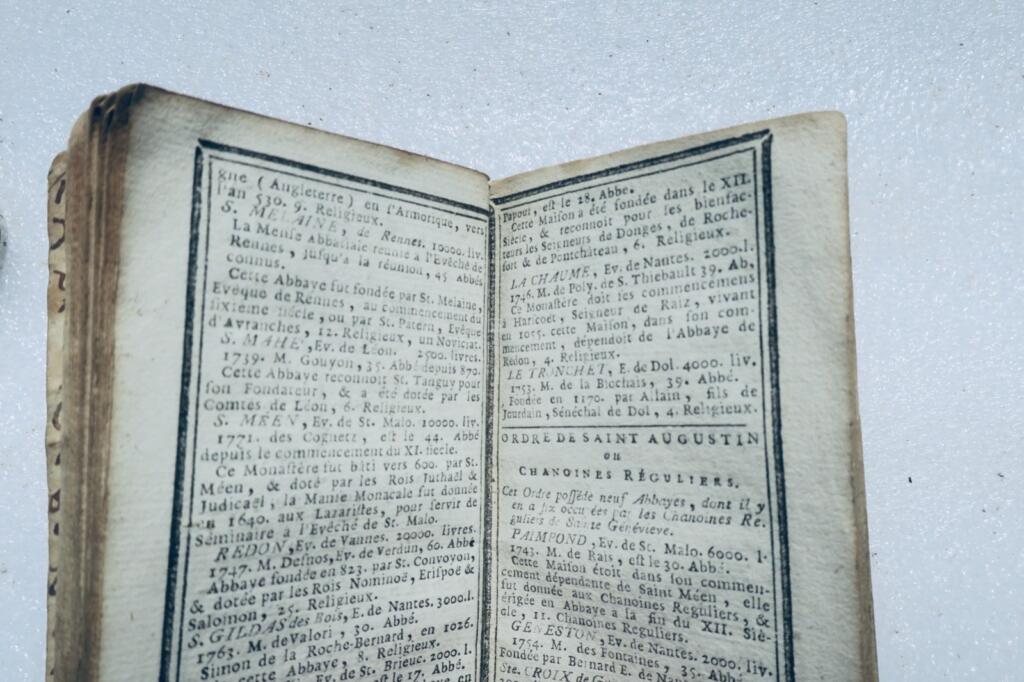 gne ( Angleterre ) en l'Armorique, vers
l'an 530. 9. Religieux.
S. MELAINE, de Rennes. 10000. liv.
La Mense Abbatiale réunie à l'Evêché de
Rennes, jusqu'à la réunion, 45 Abbés
connus.
Cette Abbaye fut fondée par St. Melaine,
Evêque de Rennes, au commencement du
sixieme siécle, ou par St. Patern, Evêque
d'Avranches, 12. Religieux, un Noviciat.
S. MAHÉ, Ev. de Léon. 2500. livres.
1739. M. Gouyon, 35. Abbé depuis 870.
Cette Abbaye reconnoît St. Tanguy pour
son Fondateur, & a été dotée par les
Comtes de Léon, 6. Religieux.
S. MÉEN, Ev. de St. Malo. 10000. liv.
1771. des Cognetz, est le 44. Abbé
depuis le commencement du XI. siecle.
Ce Monastére fut bâti vers 600. par St.
Méen, & doté par les Rois Juthaël &
Judicaël, la Manse Monacale fut donnée
en 1640. aux Lazaristes, pour servir de
Séminaire à l'Evêché de St. Malo.
REDON, Ev. de Vannes. 20000. livres.
1747. M. Desnos, Ev. de Verdun, 60. Abbé
Abbaye fondée en 823. par St. Convoyon,
& dotée par les Rois Nominoë, Erispoë &
Salomon, 25. Religieux.
S. GILDAS des Bois, E. de Nantes. 3000. l.
1763. M. de Valori, 30. Abbé.
Simon de la Roche-Bernard, en 1026.
cette Abbaye, 8. Religieux.
Ev. de St. Brieuc. 2000. l.
est le 17. Abbé.
en
Papout, est le 28. Abbé.
Cette Maison a été fondée dans le XII.
Siécle, & reconnoît pour les bienfac-
teurs les Seigneurs de Donges, de Roche-
fort & de Pontchâteau, 6. Religieux.
LA CHAUME, Ev. de Nantes. 2000. l.
1746. M. de Poly. de S. Thiebault 39. Ab,
Ce Monastére doit les commencemens
à Harscoet, Seigneur de Raiz, vivant
en 1055. cette Maison, dans son com-
mencement, dépendoit de l'Abbaye de
Redon, 4. Religieux.
LE TRONCHET, E. de Dol. 4000. liv.
1753. M. de la Biochais, 39. Abbé.
Fondée en 1170. par Allain, fils de
Jourdain, Sénéchal de Dol, 4. Religieux.
ORDRE DE SAINT AUGUSTIN
ou
CHANOINES RÉGULIERS.
Cet Ordre posséde neuf Abbayes, dont il y
en a six occupées par les Chanoines Ré-
guliers de Sainte Généviéve.
PAIMPOND, Ev. de St. Malo. 6000. l.
1743. M. de Rais, est le 30. Abbé.
Cette Maison étoit dans son commen-
cement dépendante de Saint Méen, elle
fut donnée aux Chanoines Réguliers, &
érigée en Abbaye à la fin du XII. Sié-
cle, 11. Chanoines Réguliers.
GENESTON, Ev. de Nantes. 2000. liv.
1754. M. des Fontaines, 35. Abbé.
Fondée par Bernard E. de Nantes
Ste. CROIX de